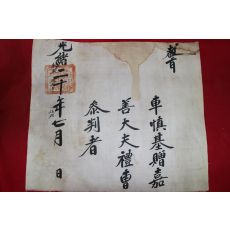 敎旨
車愼基贈嘉
善大夫禮曹
參判者
光緖二十年七月 日